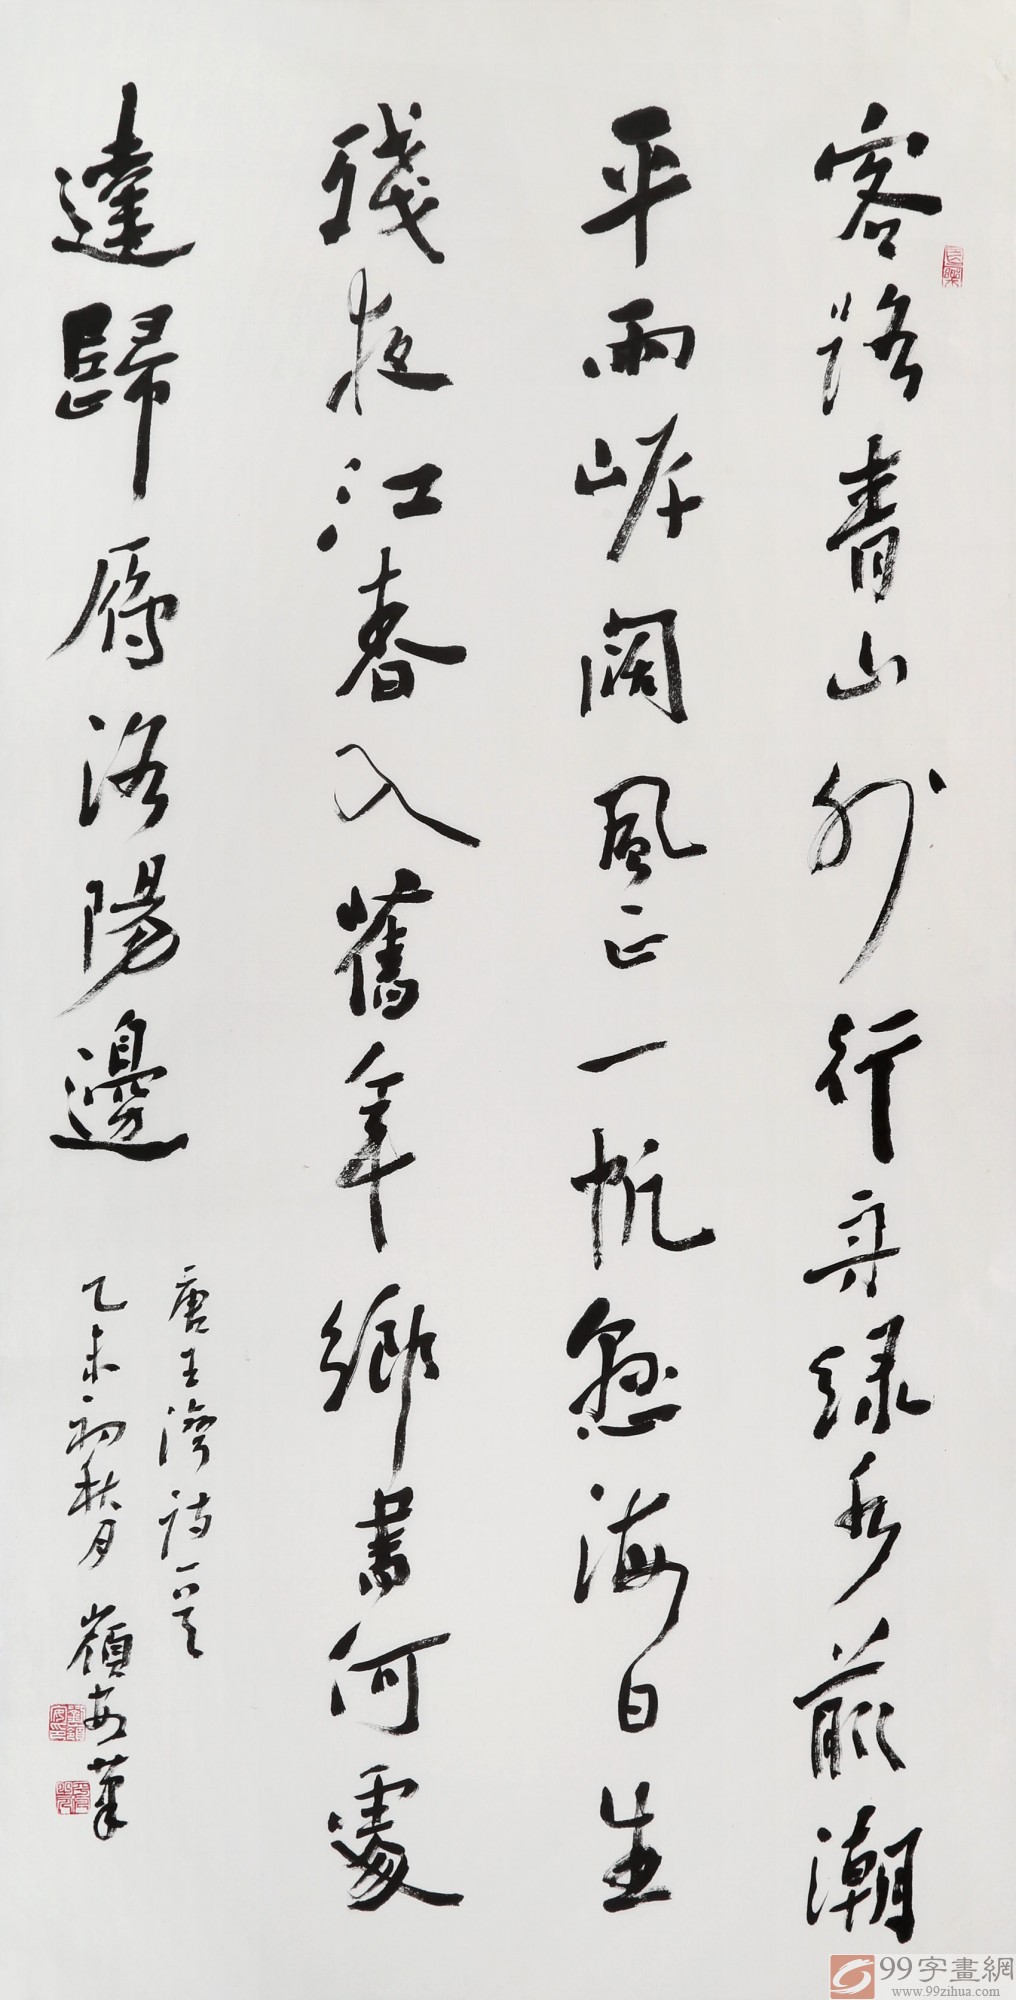 客路青山外行舟绿水前潮
平兩岸闊風正一帆懸海日生
殘夜江春入舊年鄉書何處
達歸雁洛陽邊
唐王灣詩一首
乙未初秋月嶺安筆
99字畫網
www.99zihua.com